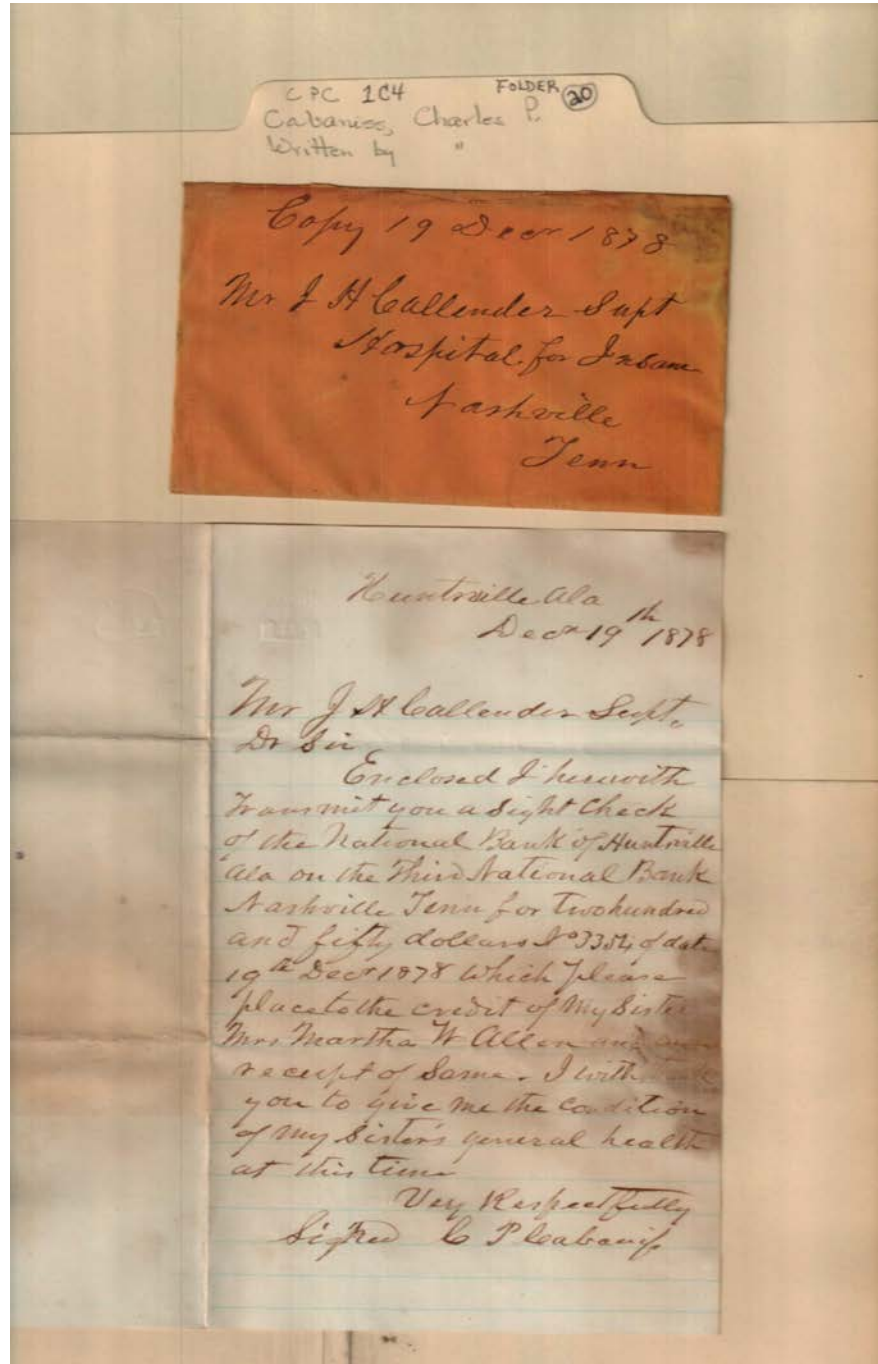 CPC 1C4 FOLDER 20
Cabaniss, Charles P.
Written by "
Copy 19 Decr 1878
Mr J H Callender Supt
Hospital for Insane
Nashville
Tenn
Huntsville Ala
Decr 19th 1878
Mr J H Callender Supt.
Dr Sir
Enclosed I herewith
Transmit you a Sight Check
of the National Bank of Huntsville
Ala on the Third National Bank
Nashville Tenn for Two hundred
and fifty dollars No 3354 of date
19th Decr 1878 which please
place to the credit of My Sister
Mrs Martha W Allen and
receipt of Same. I
you to give me the Condition
of my Sister's general health
at this time
Very Respectfully
Signed C P Cabaniss